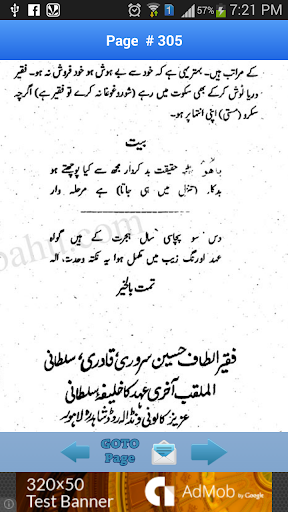 57%
7:21 PM
Page # 305
کے مراتب ہیں۔ بہتر یہی ہے کہ خود سے بے ہوش ہو خود فروش نہ ہو۔ فقیر
دریا نوش کر کے بھی سکوت میں رہے (شور و غوغا نہ کرے تو فقیر ہے) اگرچہ
سکرو (مستی) اپنی انتہا پر ہو۔
بیت
باھُوؒ حقیقت بد کردار مجھ سے کیا پوچھتے ہو
بدکار (تنزل میں ہی جاتا) ہے مرحلہ وار
دس سو پچاسی سال ہجرت کے ہیں گواہ
عہد اورنگ زیب میں مکمل ہوا یہ نکتہ وحدت، الہ
تمت بالخیر
bahu.com
فقیر الطاف حسین سروری قادری سلطانی
الملقب آخری عہد کا خلیفہ سلطانی
عزیز کالونی ونڈالہ روڈ شاہدرہ لاہور
GOTO
Page
320x50
Test Banner
AdMob by Google